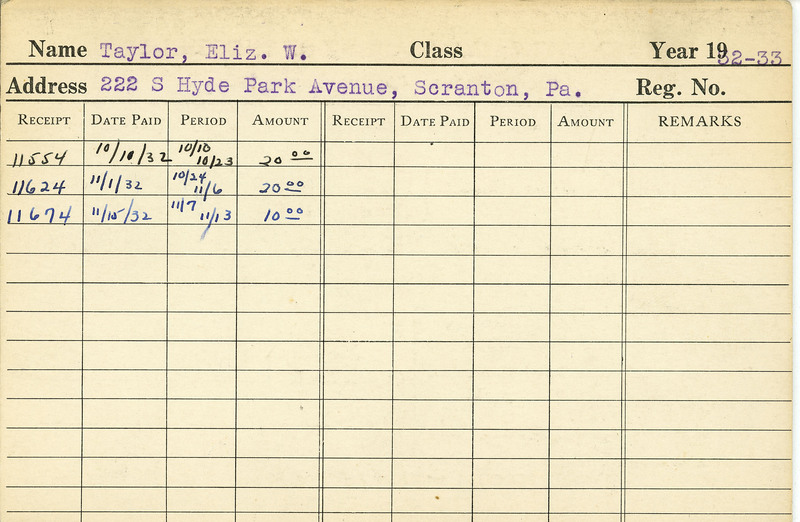 Name Taylor, Eliz. W. Class Year 1932-33
Address 222 S Hyde Park Avenue, Scranton, Pa. Reg. No.
RECEIPT DATE PAID PERIOD AMOUNT RECEIPT DATE PAID PERIOD AMOUNT REMARKS
11554 10/10/32 10/10 10/23 20 00
11624 11/1/32 10/24 11/6 20 00
11674 11/15/32 11/7 11/13 10 00